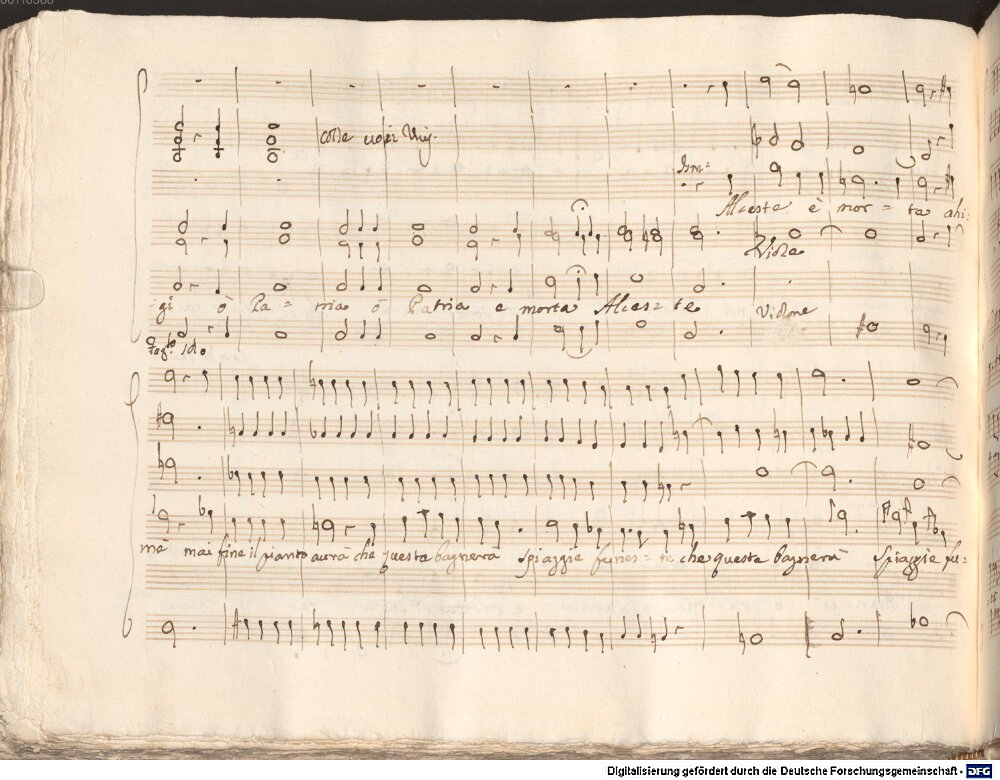 colle uoci Unis.
Ism=
Alceste è mor = te ahi
Viole
gi ò Pa = tria ò Patria e morta Alces = te
Violone
Fag.ti soli
mè mai fine il pianto aurà che questa bagnerà Spiaggie funes = te che questa bagnerà Spiaggie fu=
Digitalisierung gefördert durch die Deutsche Forschungsgemeinschaft - DFG